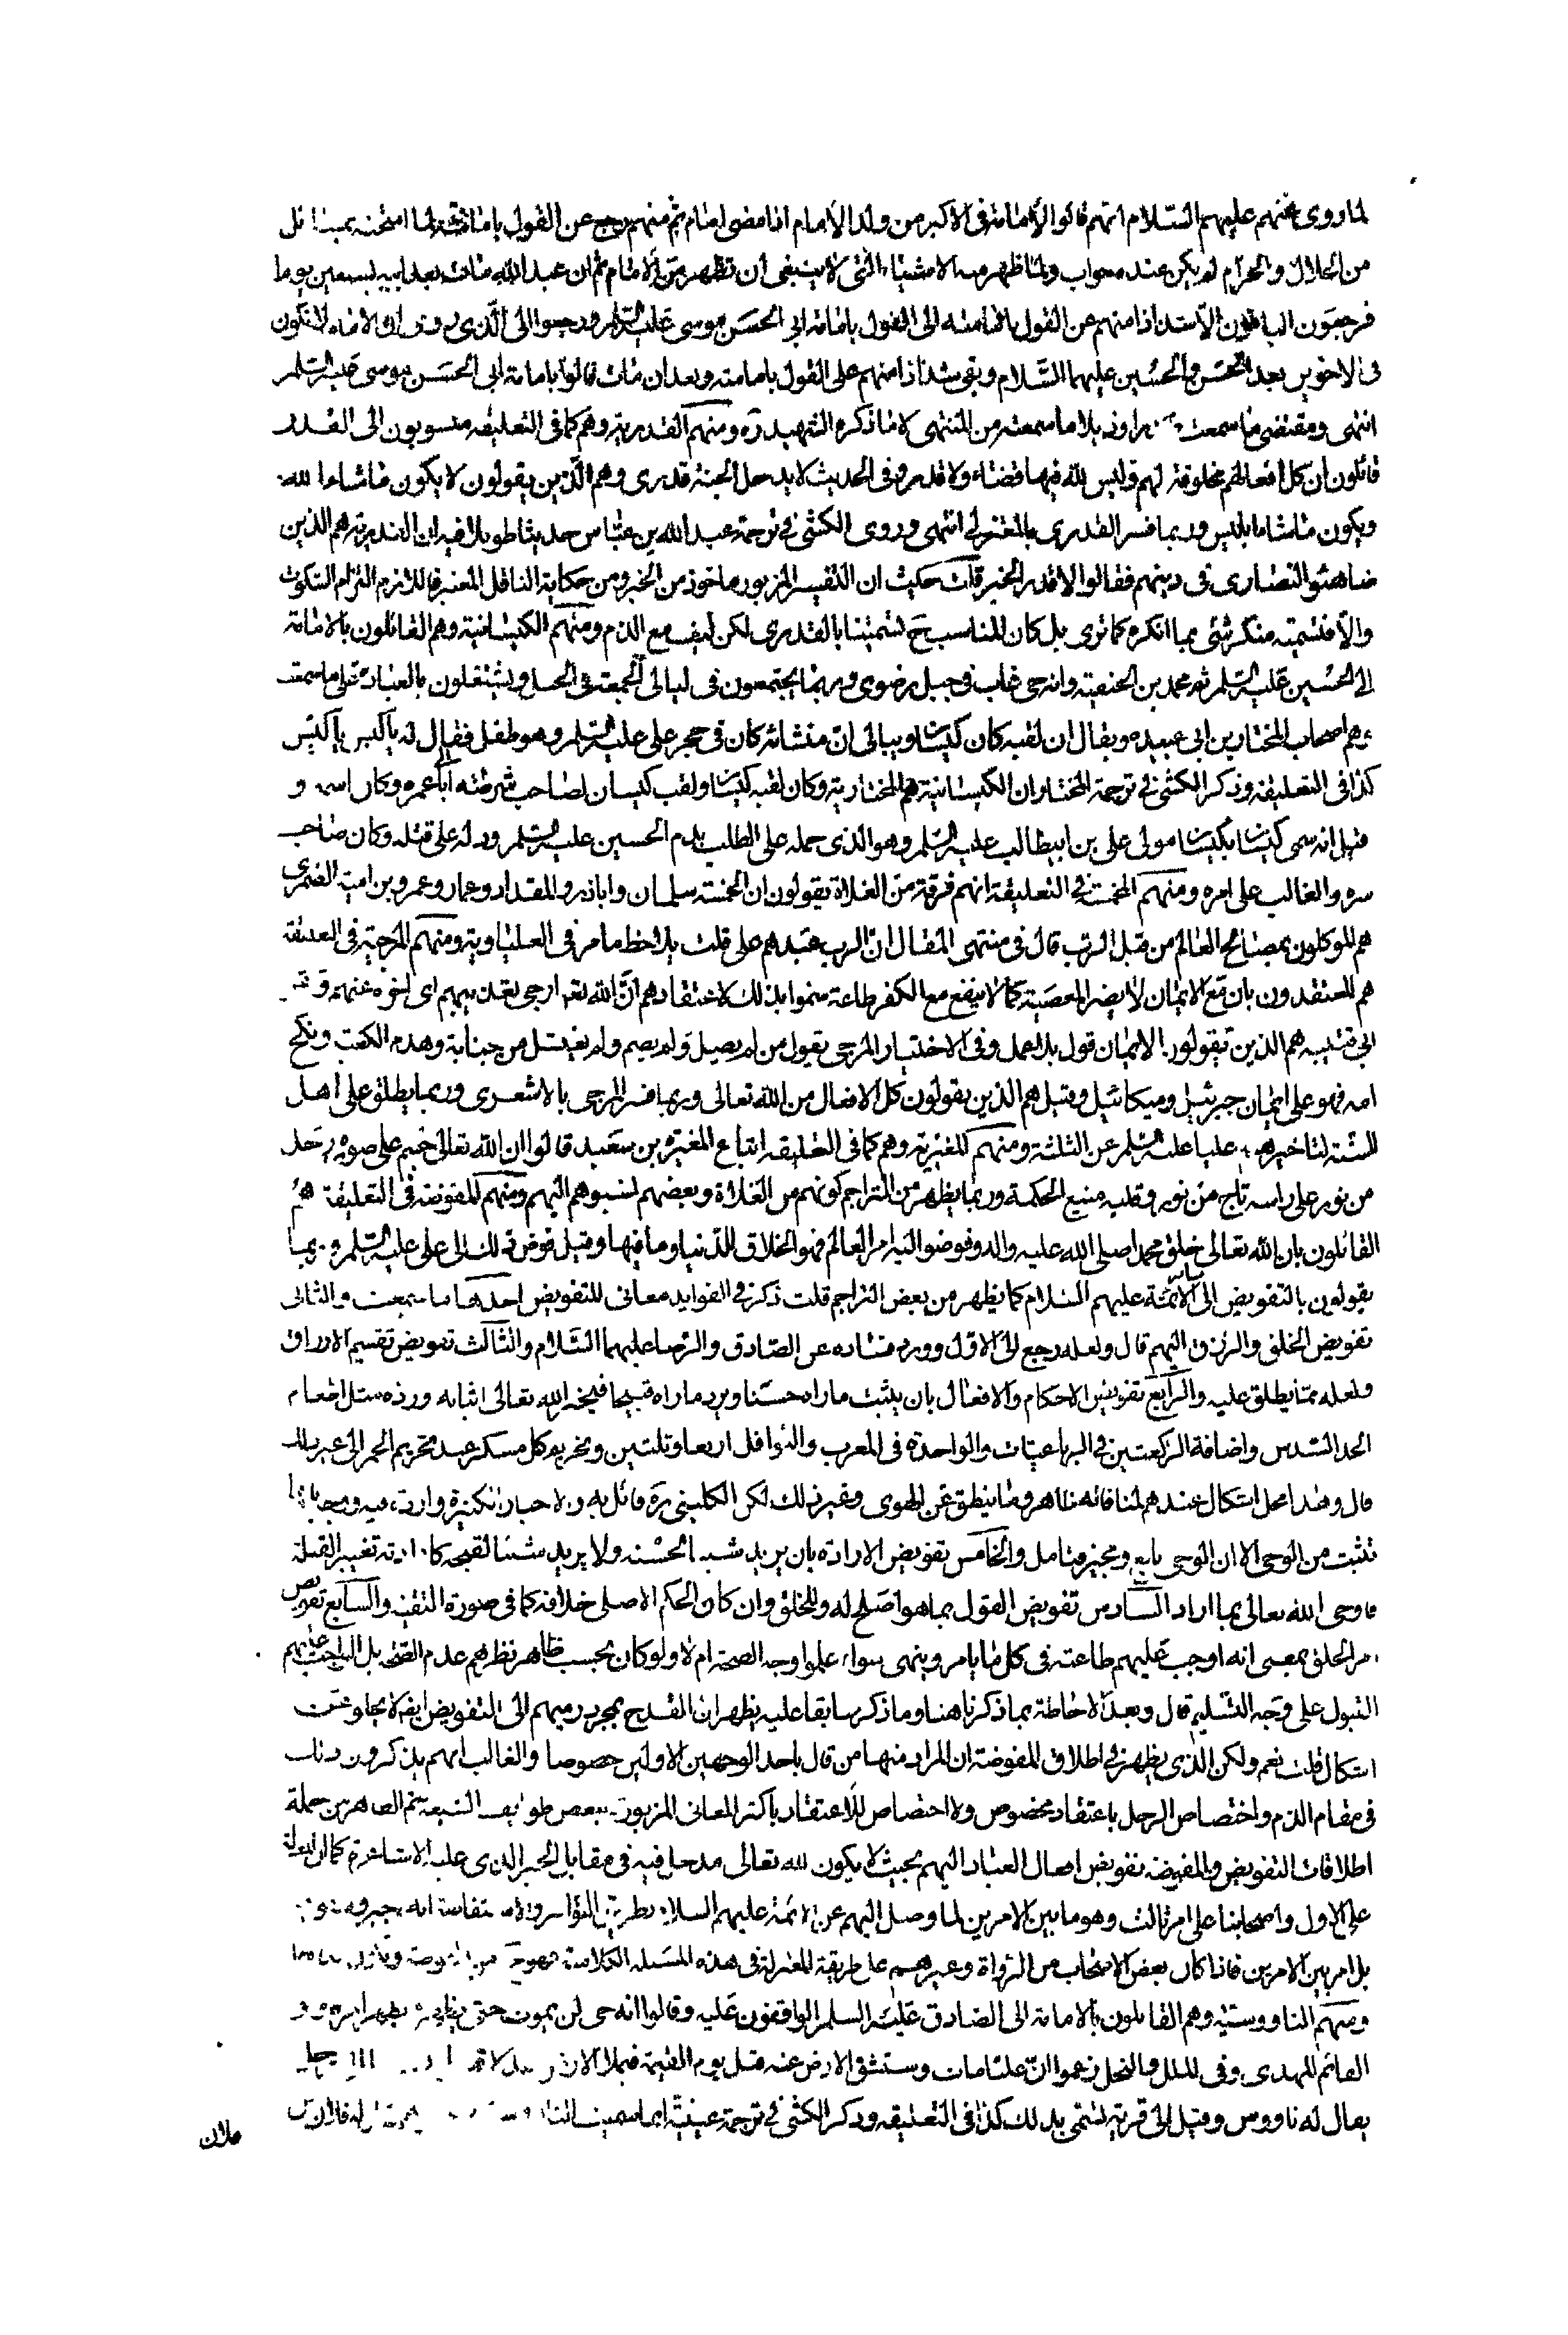 لما روى عنهم عليهم السّلام انهم قالوا الأمامة فى الاكبر من ولد الأمام اذا مضى امام ثم منهم رجع عن القول بامامته لما امتحنه بمسائل
من الحلال والحرام لم يكن عنده جواب ولما ظهر منه الاشياء التى لا ينبغى ان تظهر من الامام ثم ان عبد الله مات بعد ابيه بسبعين يوما
فرجعوا الباقون الا شذاذا منهم عن القول بامامته الى القول بامامة ابى الحسن موسى عليه السّلم ورجعوا الى الّذى روى ان الامامه لا تكون
فى الاخوين بعد الحسن والحسين عليهما السّلام وبقى شذاذا منهم على القول بامامته وبعد ان مات قالوا بامامة ابى الحسن موسى عليه السّلم
انتهى ومقتضى ما سمعت هو ما سمعته من المنتهى لا ما ذكره الشهيد ره ومنهم القدرية وهم كما فى التعليقه منسوبون الى القدر
قائلون ان كل افعالهم مخلوقة لهم وليس لله فيها قضاء ولا قدر وفى الحديث لا يدخل الجنة قدرى وهم الّذين يقولون لا يكون ما شاء الله
ويكون ما شاء ابليس وربما فسر القدرى بالمعتزلى انتهى وروى الكشى فى ترجمة عبد الله بن عبّاس حديثا طويلا فيه ان القدرية هم الذين
ضاهئوا النصارى فى دينهم فقالوا لا قدر الخبر قلت حيث ان التفسير المزبور ماخوذ من الخبر ومن حكاية الناقل المعتبر فاللازم التزام السكوت
والّا فتسميته منكر شئ بما انكره كما ترى بل كان المناسب ح تسميتنا بالقدرى لكن ليس مع الذم ومنهم الكيسانية وهم القائلون بالامامة
الى الحسين عليه السّلم ثم محمد بن الحنفية وانه حى غاب فى جبل رضوى وربما يجتمعون فى ليالى الجمعة فى الجبل ويشتغلون بالعبادة على ما سمعت
وهم اصحاب المختار بن ابى عبيده ويقال ان لقبه كان كيسان وببالى انّ منشائه كان فى حجر على عليه السّلم وهو طفل فقال له يا كيس يا كيّس
كذا فى التعليقه وذكر الكشى فى ترجمة المختار ان الكيسانية هم المختارية وكان لقبه كيسان ولقب كيسان لصاحب شرطته ابا عمره وكان اسمه و
قيل انه سمى كيسان بكيسان مولى على بن ابيطالب عليه السّلم وهو الذى حمله على الطلب بدم الحسين عليه السّلم ودله على قتله وكان صاحب
سره والغالب على امره ومنهم المخمسة فى التعليقة انهم فرقة من الغلاة يقولون ان الخمسة سلمان واباذر والمقداد وعمار وعمرو بن امية الضمرى
هم الموكلون بمصالح العالم من قبل الرب قال فى منتهى المقال انّ الرب عندهم على قلت يلاحظ ما مر فى العلياوية ومنهم المرجئة فى التعليقة
هم المعتقدون بان مع الايمان لا يضر المعصية كما لا ينفع مع الكفر طاعة سموا بذلك لاعتقادهم انّ الله تعالى ارجى تعذيبهم اى اخره عنهم وعن
ابن قتيبه هم الذين يقولون الايمان قول بلا عمل وفى الاختيار المرجى يقول من لم يصل ولم يصم ولم يغتسل من جنابة وهدم الكعبة ونكح
امه فهو على ايمان جبرئيل وميكائيل وقيل هم الذين يقولون كل الافعال من الله تعالى وربما فسر المرجى بالاشعرى وربما يطلق على اهل
السّنة لتاخيرهم عليا عليه السّلم عن الثلثة ومنهم المغيرية وهم كما فى التعليقه اتباع المغيرة بن سعيد قالوا ان الله تعالى جسم على صورة رجل
من نور على راسه تاج من نور وقلبه منبع الحكمة وربما يظهر من التراجم كونهم من الغلاة وبعضهم نسبوهم اليهم ومنهم المفوضة فى التعليقة هم
القائلون بان الله تعالى خلق محمدا صلى الله عليه واله وفوضوا اليه امر العالم فهو الخلاق للدنيا وما فيها وقيل فوض ذلك الى على عليه السّلم وربما
يقولون بالتفويض الى سائر الائمة عليهم السّلام كما يظهر من بعض التراجم قلت ذكر فى الفوايد معانى للتفويض احدها ما سمعت والثانى
تفويض الخلق والرزق اليهم قال ولعله رجع الى الاول وورد فساده عن الصّادق والرّضا عليهما السّلام والثّالث تفويض تقسيم الارزاق
ولعله ممّا يطلق عليه والرّابع تفويض الاحكام والافعال بان يثبت ما راه حسنا ويرد ما راه قبيحا فيجيز الله تعالى اثباته ورده مثل اطعام
الجد السّدس واضافة الركعتين فى الرباعيّات والواحدة فى المغرب والنّوافل اربعا وثلثين وتحريم كل مسكر عند تحريم الخمر الى غير ذلك
قال وهذا محل اشكال عندهم لمنافاته ظاهر وما ينطق عن الهوى وغير ذلك لكن الكلينى ره قائل به والاخبار الكثيرة واردة فيه ووجه بانها
تثبت من الوحى الا ان الوحى تابع ومجيز فتامل والخامس تفويض الارادة بان يريد شيئا لحسنه ولا يريد شيئا لقبحه كارادته تغيير القبلة
فاوحى الله تعالى بما اراد السّادس تفويض القول بما هو اصلح له وللخلق وان كان الحكم الاصلى خلافه كما فى صورة التقيّة والسّابع تفويض
امر الخلق بمعنى انه اوجب عليهم طاعته فى كل ما يامر وينهى سواء علموا وجه الصحة ام لا ولو كان بحسب ظاهر نظرهم عدم الصّحّة بل الواجب عليهم
القبول على وجه التّسليم قال وبعد الاحاطة بما ذكرنا هنا وما ذكر سابقا عليه يظهر ان القدح بمجرد رميهم الى التفويض ايض لا يخلو عن
اشكال قلت نعم ولكن الّذى يظهر فى اطلاق المفوضة ان المراد منها من قال باحد الوجهين الاولين خصوصا والغالب انهم يذكرون ذلك
فى مقام الذم واختصاص الرجل باعتقاد مخصوص ولا اختصاص للاعتقاد باكثر المعانى المزبورة ببعض طوايف الشيعه ثم الظاهر من جملة
اطلاقات التفويض والمفوضة تفويض افعال العباد اليهم بحيث لا يكون لله تعالى مدخل فيه فى مقابل الجبر الذى عليه الاشاعرة كما ان المعتزلة
على الاول واصحابنا على امر ثالث وهو ما بين الامرين لما وصل اليهم عن الائمة عليهم السلام بطريق التواتر
بل امر بين الامرين فاذا كان بعض الاصحاب من الرواة وغيرهم على طريقة المعتزلة فى هذه المسئلة الكلامية
ومنهم الناووسيّة وهم القائلون بالامامة الى الصّادق عليه السلم الواقفون عليه وقالوا انه حى لن يموت حتى يظهر ويظهر امره وهو
القائم المهدى وفى الملل والنحل زعموا انّ عليّا مات وستنشق الارض عنه قبل يوم القيمة فيملأ الارض
يقال له ناووس وقيل الى قرية تسمى بذلك كذا فى التعليقه وذكر الكشى فى ترجمة عنبسة انما سميت
فلان